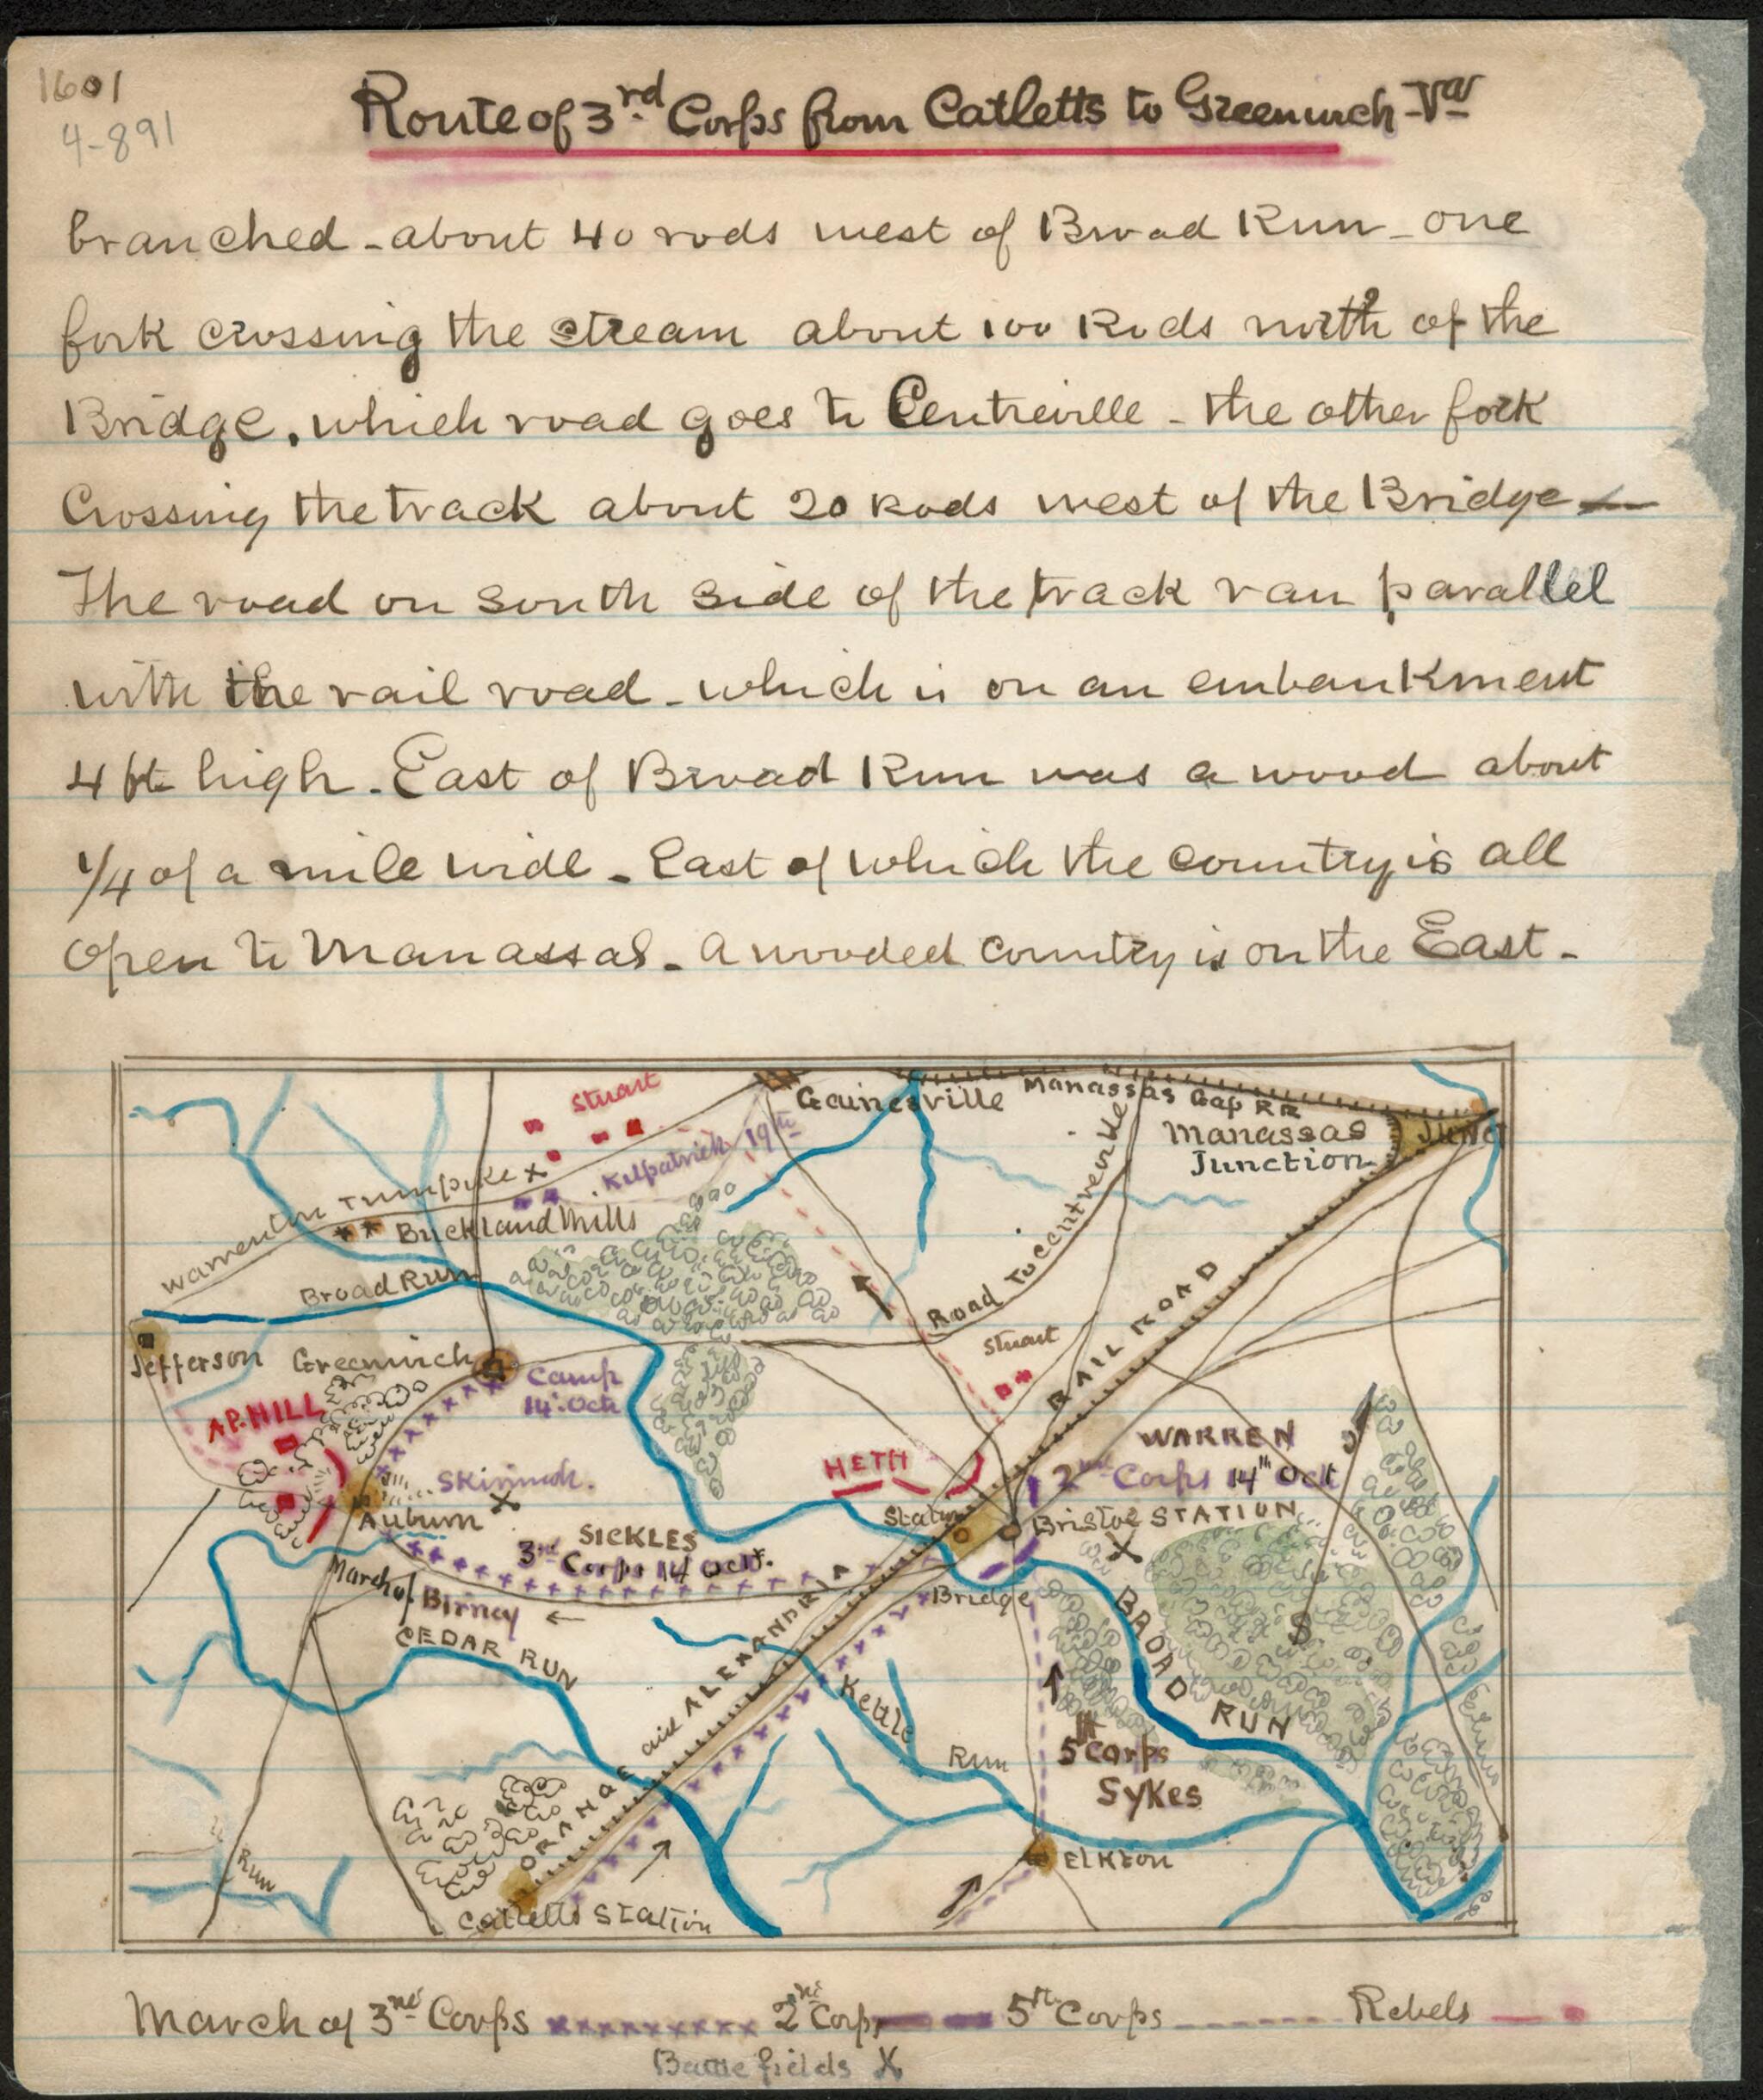 1601
4-891
Route of 3rd Corps from Catletts to Greenwich Va
branched - about 40 rods west of Broad Run - one
fork crossing the stream about 100 Rods north of the
Bridge, which road goes to Centreville - the other fork
Crossing the track about 20 Rods west of the Bridge -
The road on south side of the track ran parallel
with the rail road - which is on an embankment
4 ft high. East of Broad Run was a wood about
1/4 of a mile wide - East of which the country is all
open to Manassas - a wooded country is on the East -
Stuart
Gainesville
Manassas Gap RR
Manassas
Junction
Junct
Kilpatrick 19th
Warrenton Turnpike X
Buckland Mills
Broad Run
Road To Centreville
Jefferson
Greenwich
Camp
14. Oct
Stuart
RAIL ROAD
A.P. HILL
HETH
WARREN
2nd Corps 14th Oct
Skirmish.
X
Auburn
Station
Bristoe STATION
X
SICKLES
3rd Corps 14 Oct.
March of Birney
Bridge
CEDAR RUN
BROAD RUN
S
ORANGE and ALEXANDRIA
Kettle
Run
5th Corps
Sykes
Elkton
Run
Catletts Station
March of 3rd Corps xxxxxxxxxx 2nd Corps 5th Corps Rebels
Battle fields X